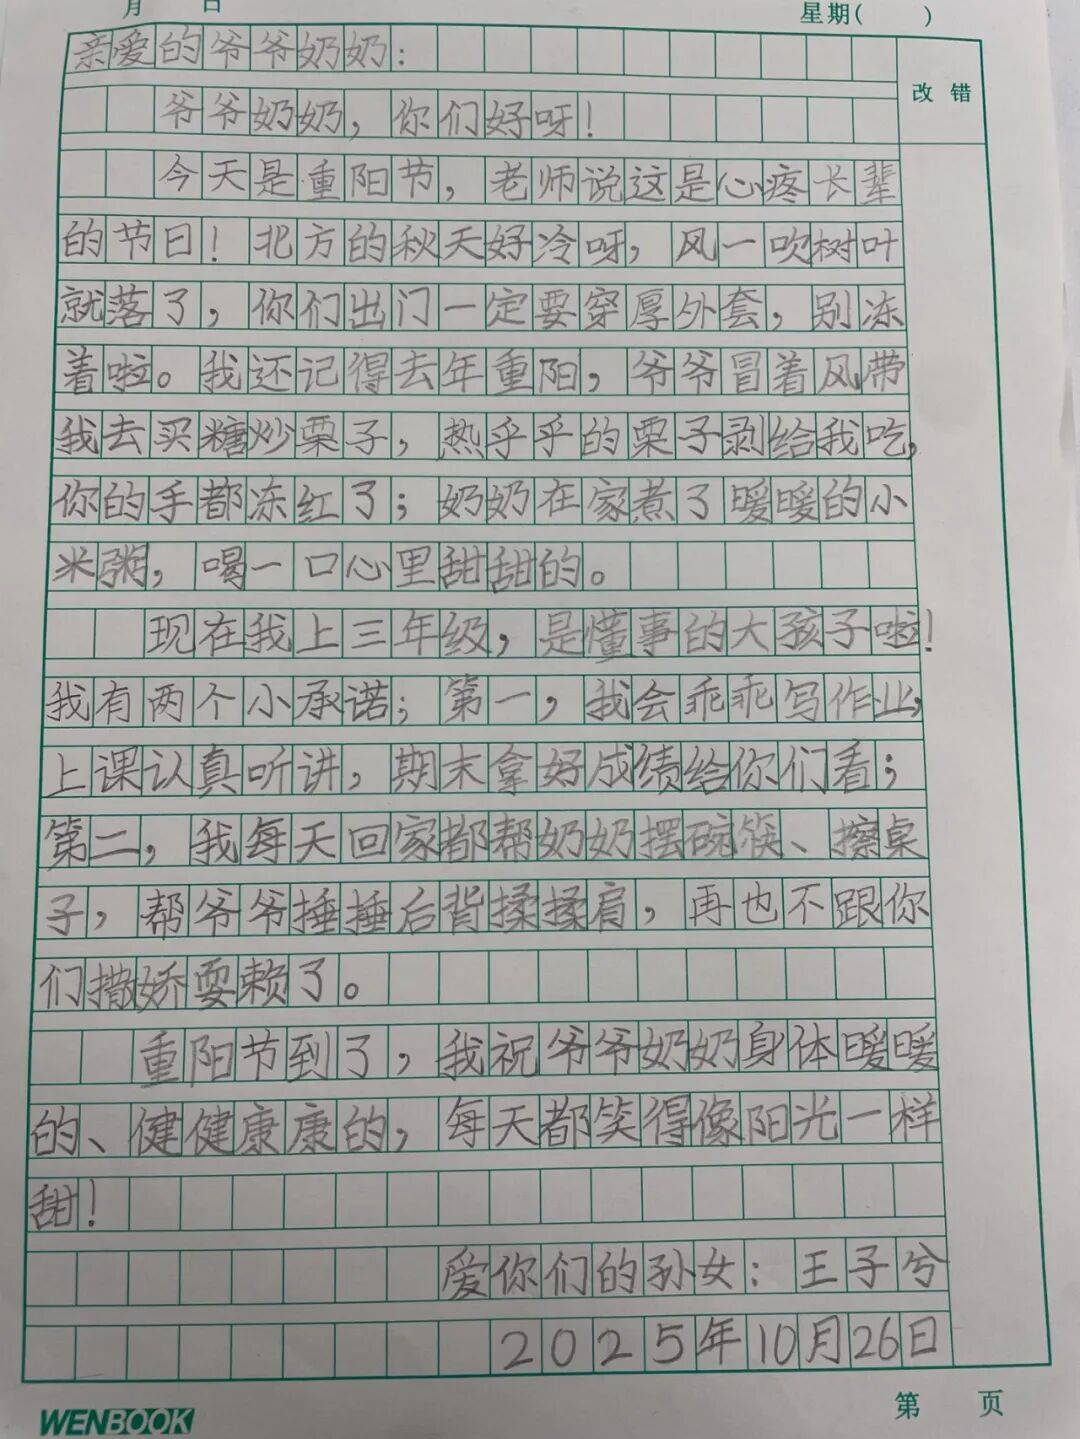 月 日 星期( )
亲爱的爷爷奶奶：
改错
爷爷奶奶，你们好呀！
今天是重阳节，老师说这是心疼长辈
的节日！北方的秋天好冷呀，风一吹树叶
就落了，你们出门一定要穿厚外套，别冻
着啦。我还记得去年重阳，爷爷冒着风带
我去买糖炒栗子，热乎乎的栗子剥给我吃，
你的手都冻红了；奶奶在家煮了暖暖的小
米粥，喝一口心里甜甜的。
现在我上三年级，是懂事的大孩子啦！
我有两个小承诺；第一，我会乖乖写作业，
上课认真听讲，期末拿好成绩给你们看；
第二，我每天回家都帮奶奶摆碗筷、擦桌
子，帮爷爷捶捶后背揉揉肩，再也不跟你
们撒娇耍赖了。
重阳节到了，我祝爷爷奶奶身体暖暖
的、健健康康的，每天都笑得像阳光一样
甜！
爱你们的孙女：王子兮
2025年10月26日
WENBOOK
第 页